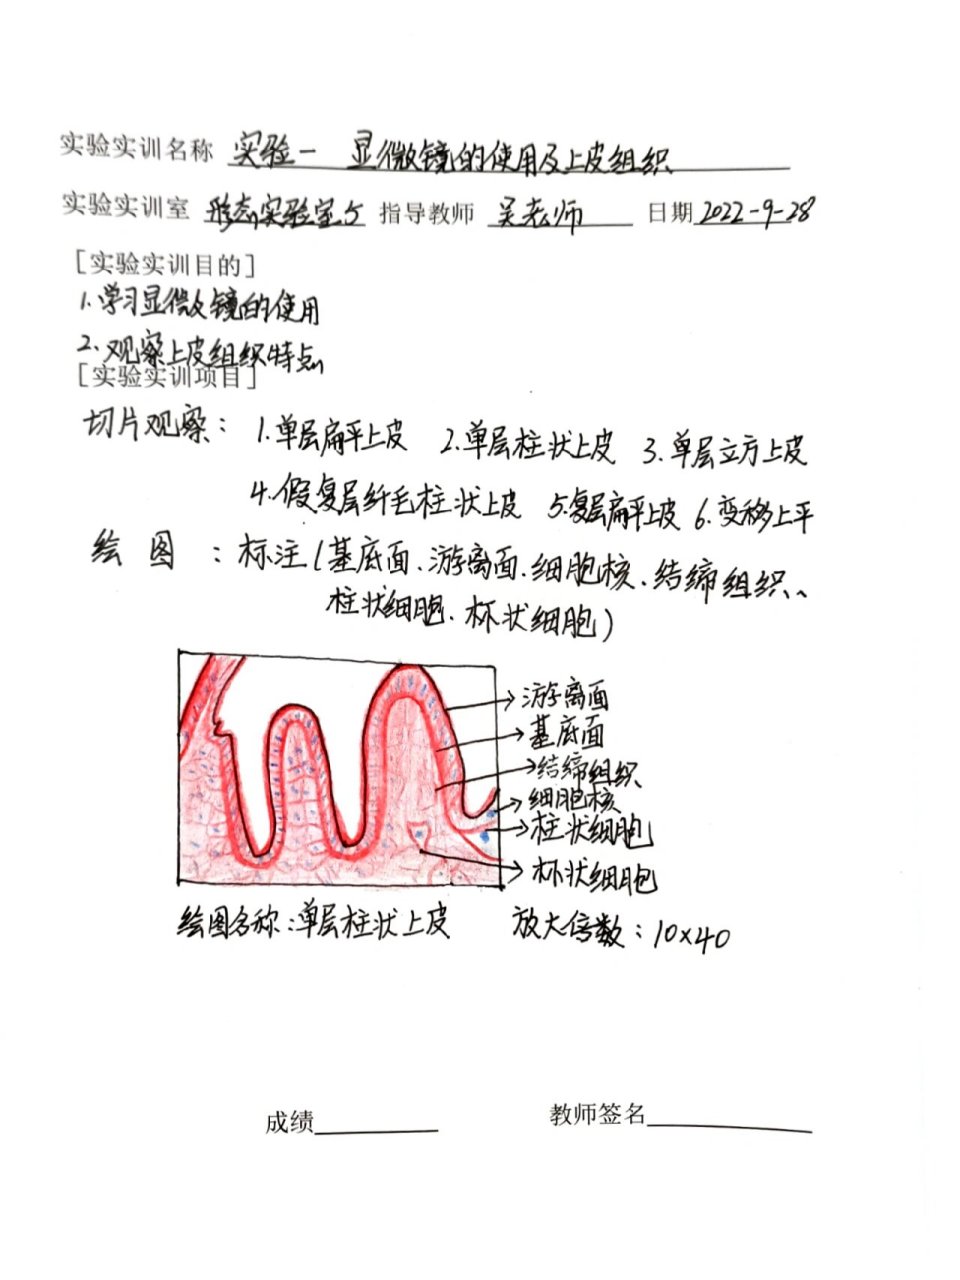 实验实训名称 实验一 显微镜的使用及上皮组织
实验实训室 形态实验室5 指导教师 吴老师 日期 2022-9-28
[实验实训目的]
1.学习显微镜的使用
2.观察上皮组织特点
[实验实训项目]
切片观察： 1.单层扁平上皮 2.单层柱状上皮 3.单层立方上皮
4.假复层纤毛柱状上皮 5.复层扁平上皮 6.变移上平
绘图：标注(基底面、游离面、细胞核、结缔组织、
柱状细胞、杯状细胞)
游离面
基底面
结缔组织
细胞核
柱状细胞
杯状细胞
绘图名称：单层柱状上皮 放大倍数：10×40
成绩 教师签名